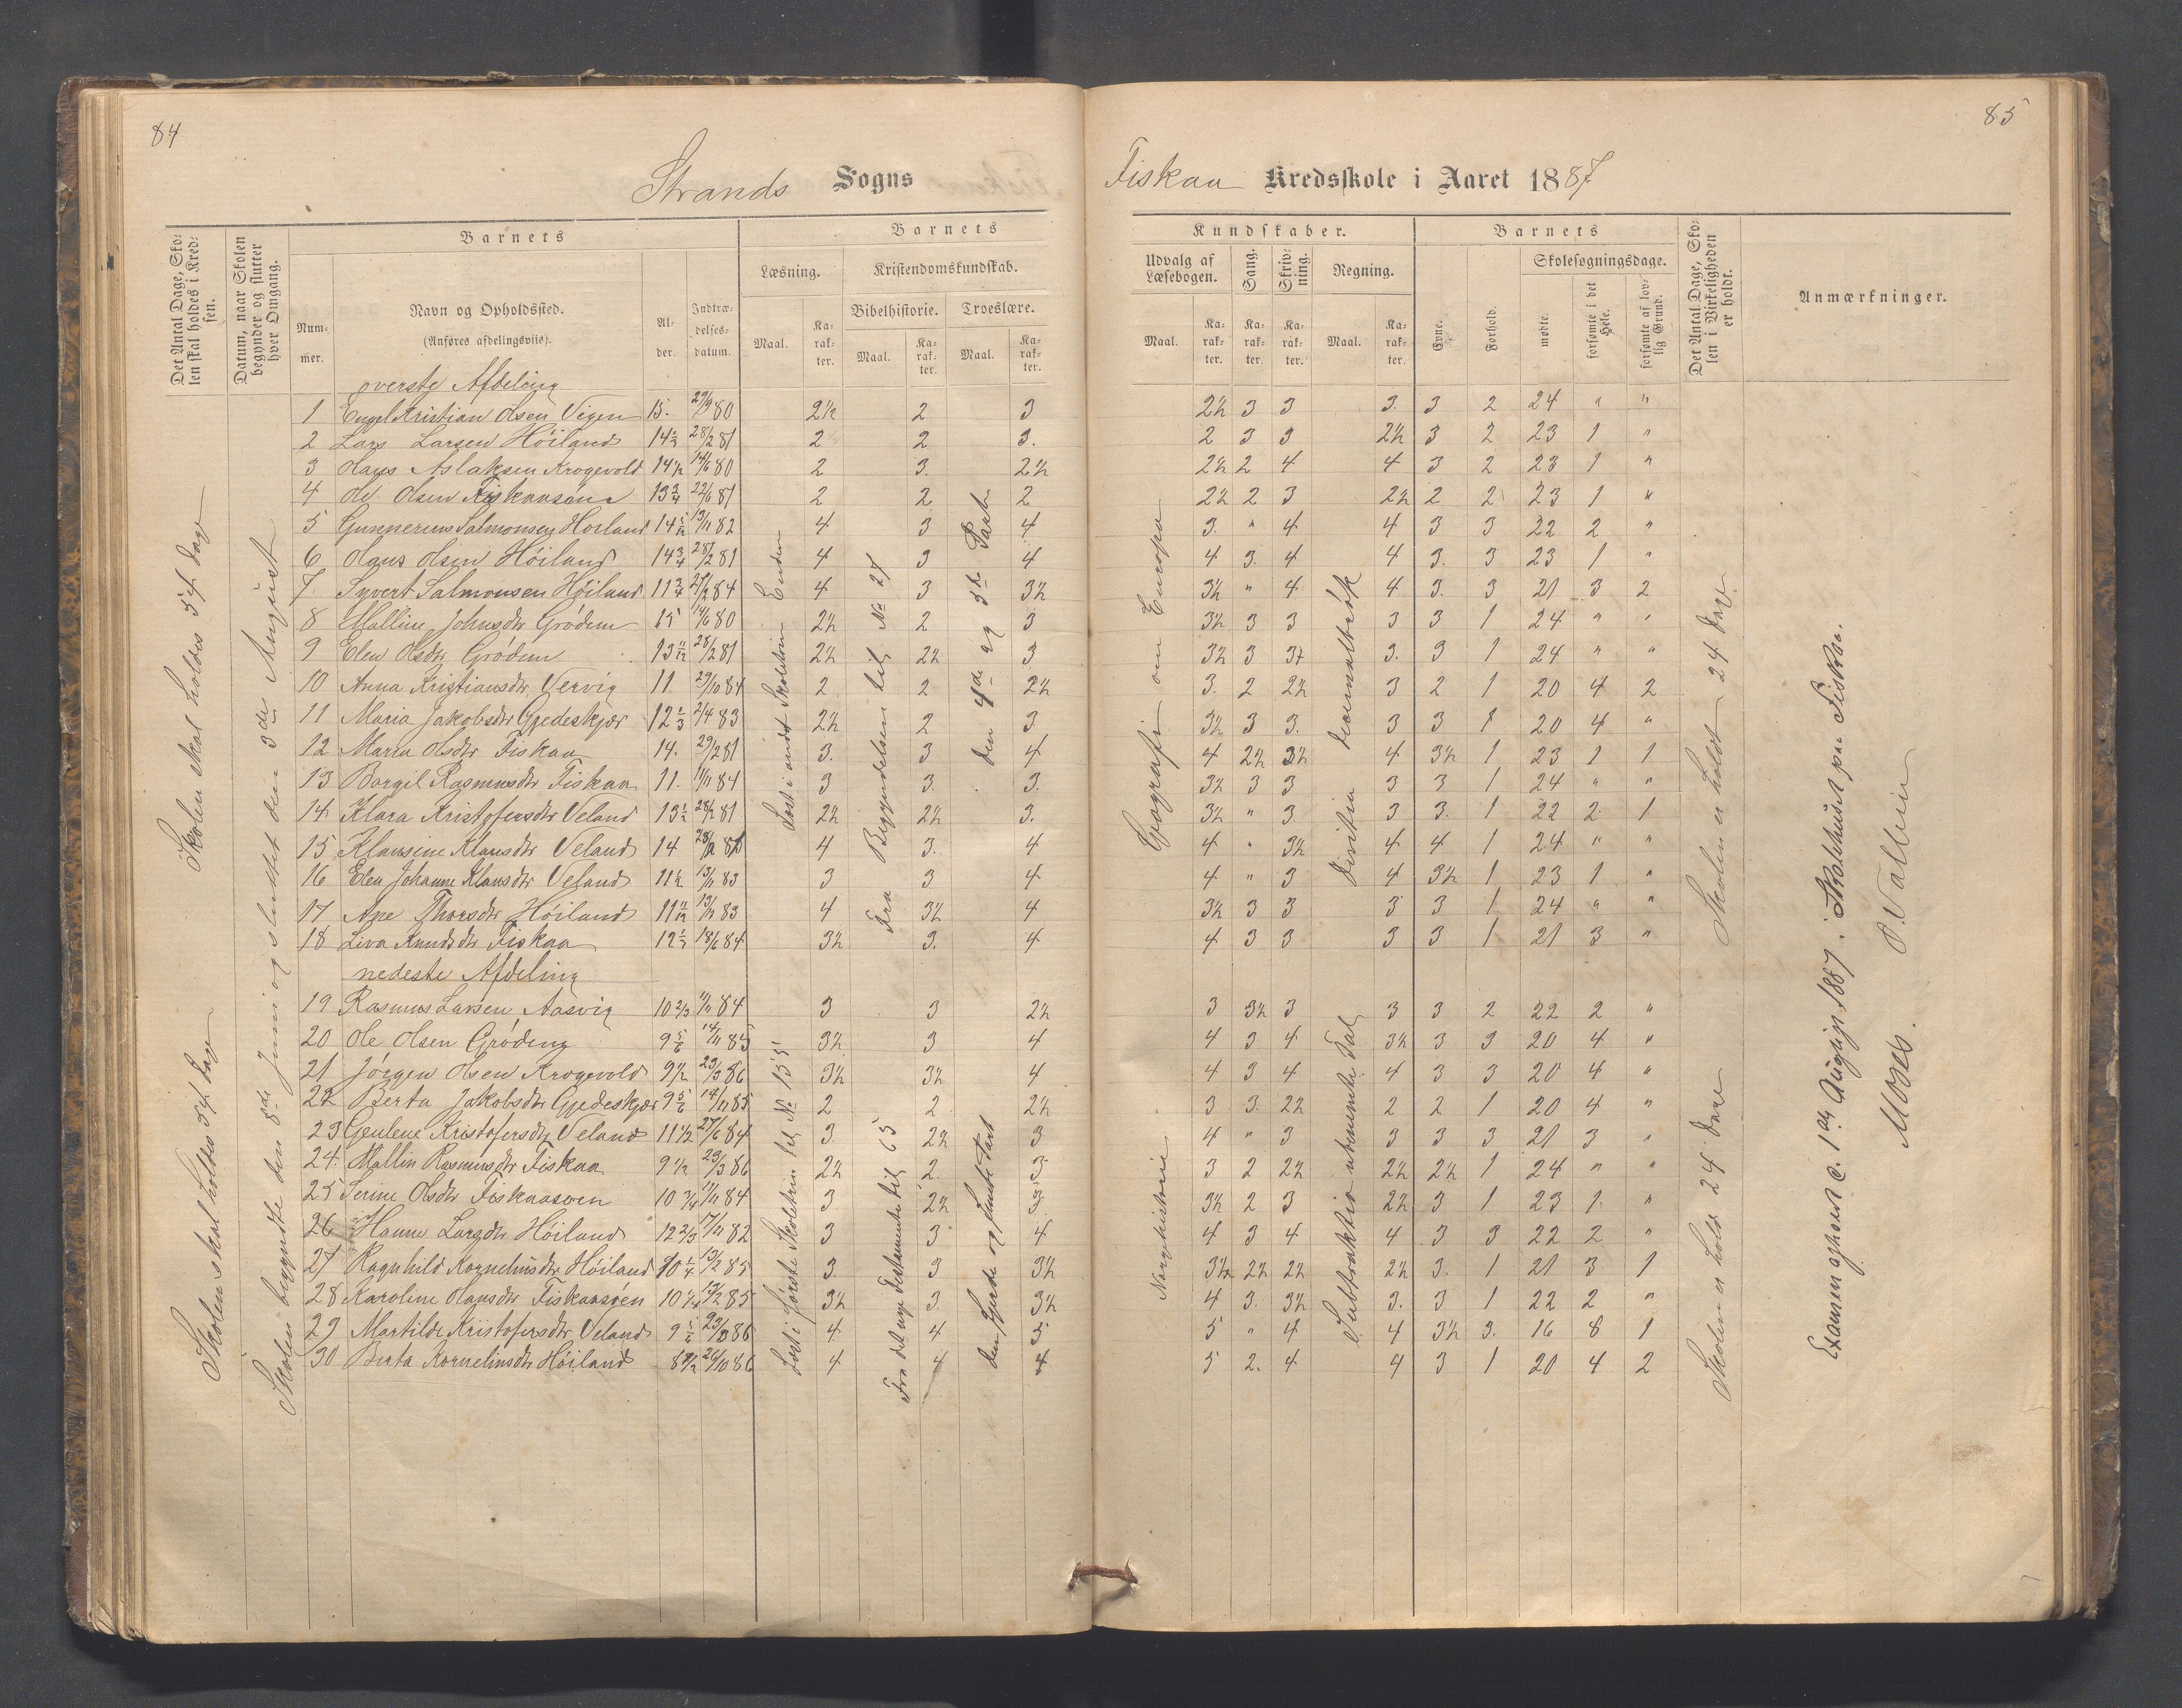 84
Strands Sogns
Det Antal Dage, Skolen skal holdes i Kredsen.
Datum, naar Skolen begynder og slutter hver Omgang.
Barnets
Nummer.
Navn og Opholdssted.
(Anføres afdelingsviis).
Alder.
Indtrædelsesdatum.
Barnets
Læsning.
Kristendomskundskab.
Bibelhistorie. Troeslære.
Maal. Karakter. Maal. Karakter. Maal. Karakter.
Skolen skal holdes 54 Dage
Skolen skal holdes 54 Dage
Skolen begyndte den 8de Juni og sluttet den 3die August
Læst i andet Skoletrin Enden
Fra Begyndelsen til No 27
den 4da og 5te Part
Læst i første Skoletrin til No 155
Fra det nye Testamente til 65
den fjerde og femte Part
øverste Afdeling
1 Engel Kristian Olsen Vigen 15. 29/9 80 2½ 2 3
2 Lars Larsen Höiland 14⅔ 28/2 81 2 2 3.
3 Hans Aslaksen Krogevold 14½ 14/6 80 2 3. 2½
4 Ole Olsen Fiskaaseen 13¾ 22/6 81 2 2 2
5 Gunnerius Salmonsen Hoiland 14 13/11 82 4 3 4
6 Hans Olsen Höiland 14¾ 28/2 81 4 3 4
7. Syvert Salmonsen Höiland 11¾ 27/2 84 4 3 3½
8 Malline Johnsdtr Grödem 15 14/6 80 2½ 2 3
9 Elen Olsdtr Grödem 13 28/2 81 2½ 2½ 3
10 Anna Kristiansdtr Vervig 11 29/10 84 2 2 2½
11 Maria Jakobsdtr Gjedeskjær 12⅓ 2/4 83 2½ 2 3
12 Maria Olsdtr Fiskaa 14. 29/2 81 3. 3 4
13 Borgil Rasmusdtr Fiskaa 11. 11/11 84 3 3. 3.
14 Klara Kristofersdtr Veland 13½ 28/2 81 2½ 2½ 3.
15 Klausine Klausdtr Veland 14 28/2 81 4 3. 4
16 Elen Johanne Klausdtr Veland 11½ 13/2 83 3 3 4
17 Ane Thorsdtr Höiland 11 13/2 83 4 3½ 4
18 Liva Knudsdtr Fiskaa 12½ 18/6 84 3½ 3. 4
nedeste Afdeling
19 Rasmus Larsen Aasvig 10⅔ 11/11 84 3 3 2½
20 Ole Olsen Grödem 9⅚ 14/11 85 3½ 3 4
21 Jörgen Olsen Krogevold 9½ 23/3 86 3½ 3½ 4
22 Berta Jakobsdtr Gjedeskjær 9⅚ 14/11 85 2 2 2½
23 Gjenlene Kristofersdtr Veland 11½ 27/6 84 3. 2½ 3
24 Mallin Rasmusdtr Fiskaa 9½ 23/3 86 2½ 2. 3.
25 Serine Olsdtr Fiskaasoen 10¾ 11/11 84 3 2½ 3
26 Hanne Larsdtr Höiland 12⅔ 17/11 82 3 3 4
27 Ragnhild Kornelinsdtr Höiland 10¼ 13/2 85 3. 3 3½
28 Karoline Hansdtr Fiskaasöen 10¼ 13/2 85 3½ 3. 3½
29 Martilde Kristofersdtr Veland 9 23/3 86 4 4 5
30 Berta Kornelinsdtr Höiland 8½ 26/10 86 4 4 4
85
Fiskaa Kredsskole i Aaret 1887
Kundskaber.
Udvalg af Læsebogen. Sang. Skrivning. Regning.
Maal. Karakter. Karakter. Karakter. Maal. Karakter.
Barnets
Evne. Forhold.
Skolesøgningsdage.
mødte. forsømte i det Hele. forsømte af lovlig Grund.
Det Antal Dage, Skolen i Virkeligheden er holdt.
Anmærkninger.
Geografi om Europa
Norgehistorie
Divition decemalbrök
Subtraktion ubenevnte Tal
2½ 3 3 3. 3 2 24 " "
2 3 3 2½ 3 2 23 1 "
2½ 2 4 4 3 2 23 1 "
2½ 2 3 2½ 2 2 23 1 "
3. " 4 4 3 3 22 2 "
4 3. 4 4 3. 3 23 1 "
3½ " 4 4 3. 3 21 3 2
3½ 3 3 3 3 1 24 " "
3½ 3 3½ 3. 3 1 24 " "
3. 2 2½ 3 2 1 20 4 2
3½ 3 3. 3 3 1 20 4 "
4 2½ 3½ 4 3½ 1 23 1 1
3½ 3 3 3 3 1 24 " "
3½ " 3 3 3. 1 22 2. 1
4 " 3½ 4 4 1 24 " "
4 " 3 4 3½ 1 23 1 "
3½ 3 3 3 3 1 24 " "
4 3 3 3 3 1 21 3 "
3 3½ 3 3 3 2 22 2 "
4 3 4 3½ 3 3 20 4 "
4 3 4 4 3 3 20 4 "
3 3. 2½ 2 2 1 20 4 "
4 " 3 3 3 3 21 3 "
3 2 2½ 2½ 2½ 1 24 " "
3½ 2 3 2½ 3 1 23 1. "
4 3 4 4 3 3 22 2 "
3½ 2½ 2½ 2½ 3. 1 21 3 1
4 3. 3½ 3. 3 1 22 2 "
5 " 4 4 3½ 3. 16 8 1
5 2. 4 4 3 1 20 4 2
Skolen er holdt 24 Dage
Skolen er holdt 24 Dage
Examen afholdt d. 1ste August 1887 i Skolehuset paa Fiskaa.
Moses. P. Vallin